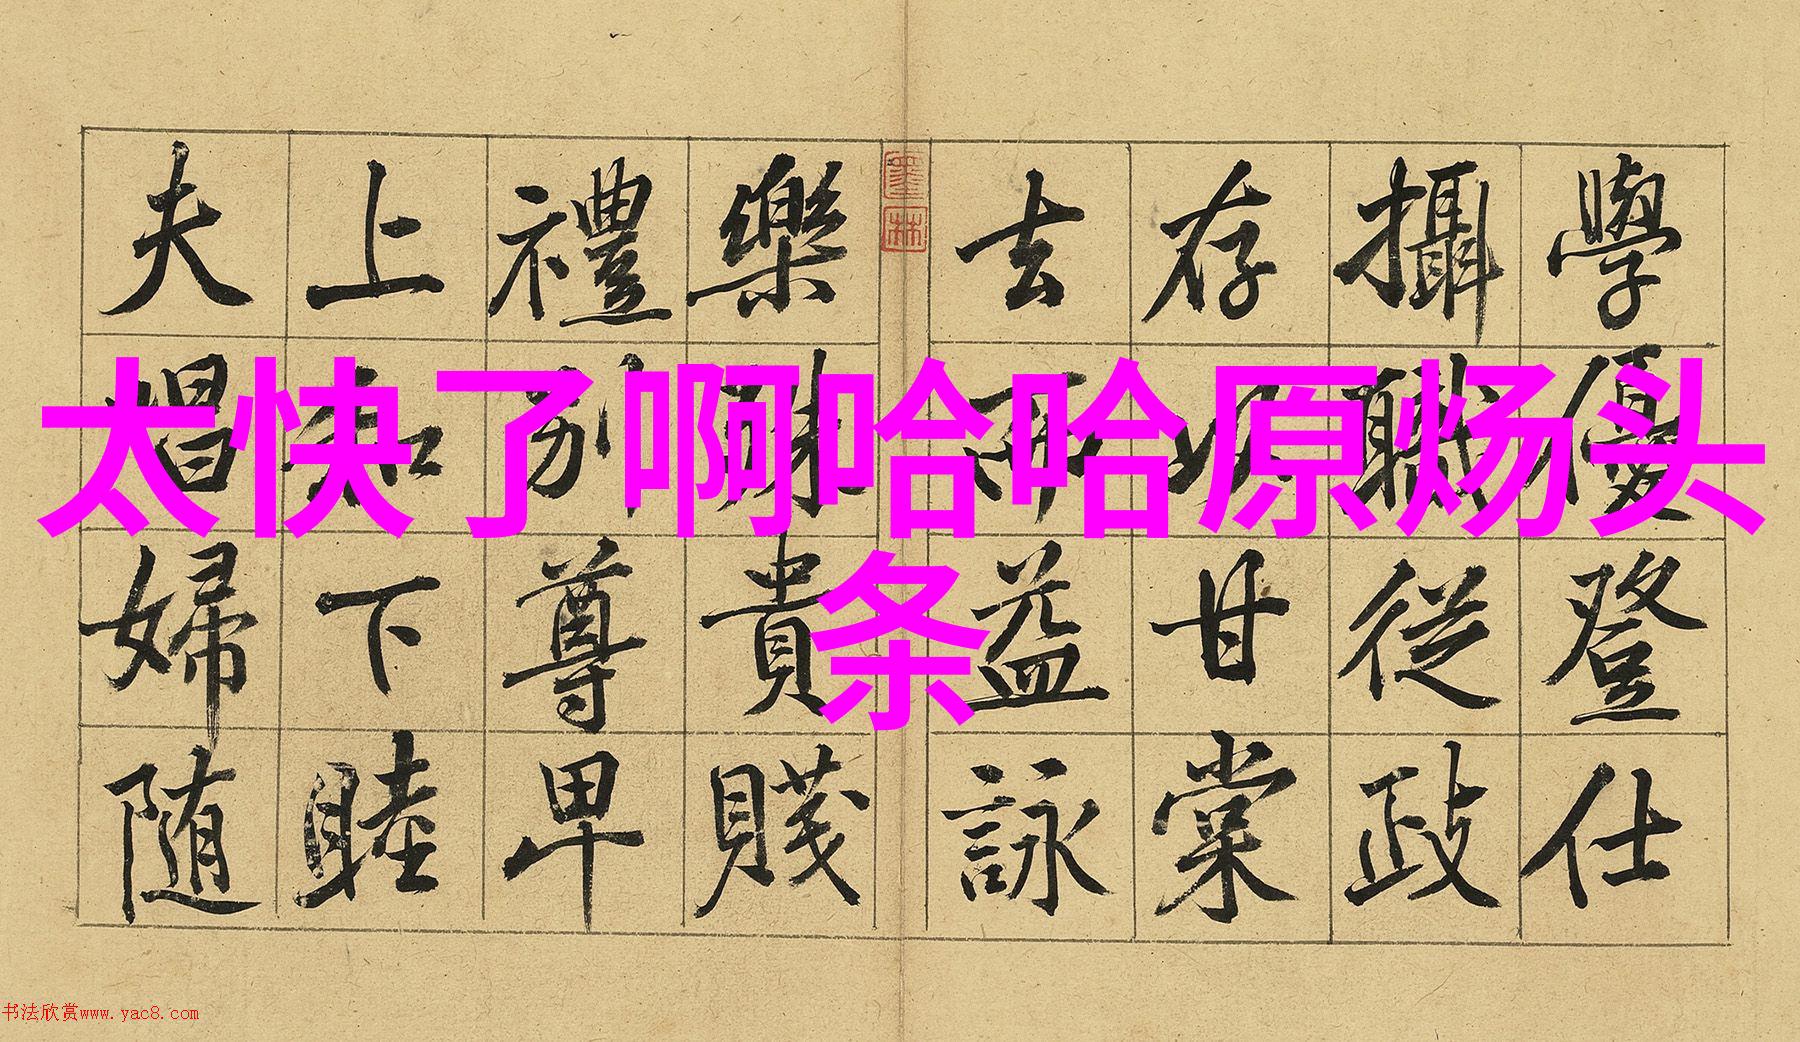 太快了啊哈哈原炀头
条
學優登仕
攝職從政
存以甘棠
去而益詠
墨林
樂殊貴賤
禮别尊卑
上和下睦
夫唱婦随
书法欣赏www.yac8.com